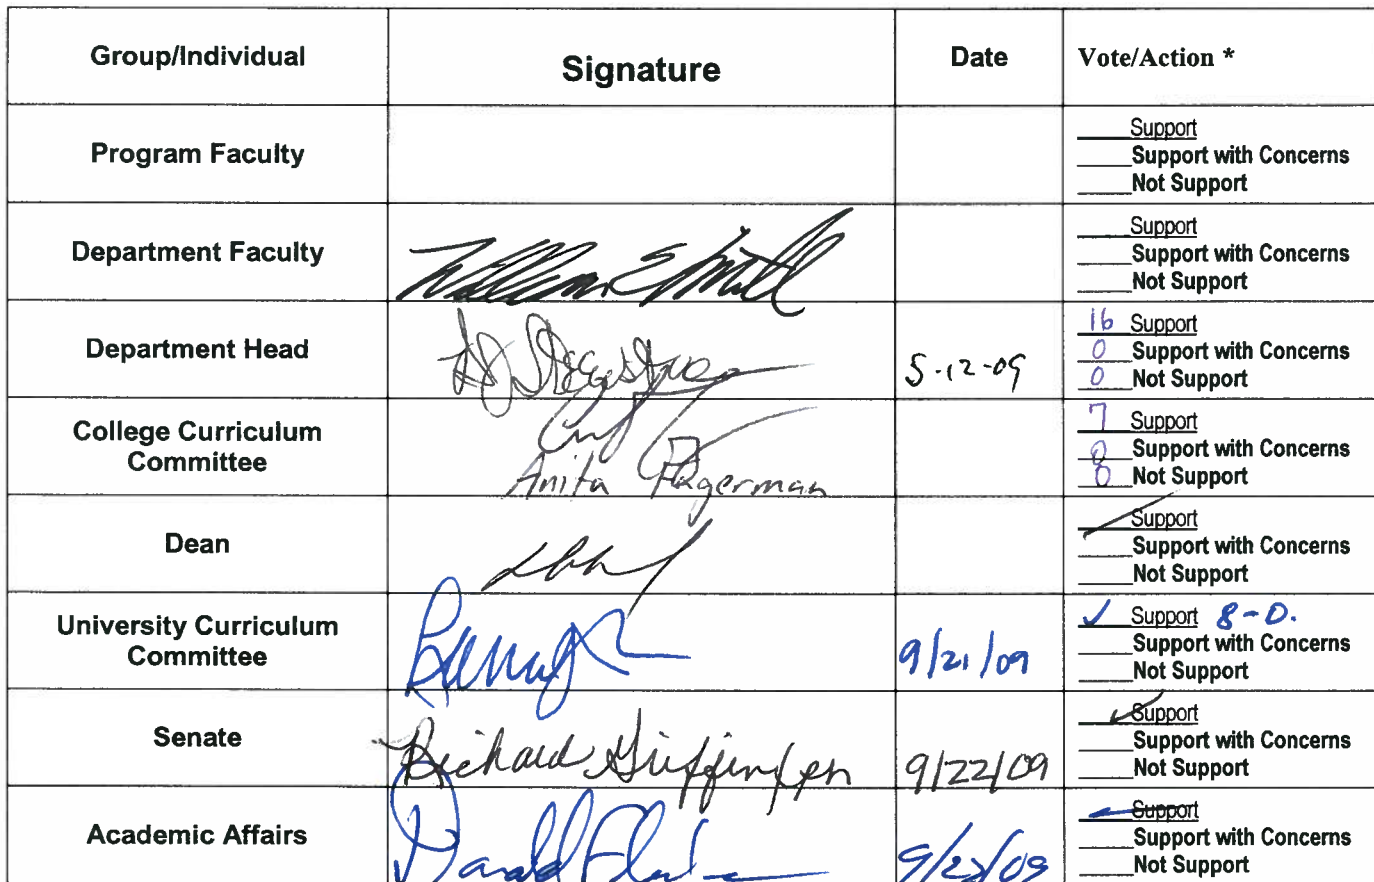 Group/Individual Signature Date Vote/Action *
Program Faculty
____Support
____Support with Concerns
____Not Support
Department Faculty
____Support
____Support with Concerns
____Not Support
Department Head 5-12-09
16 Support
0 Support with Concerns
0 Not Support
College Curriculum
Committee
Anita Fagerman
7 Support
0 Support with Concerns
0 Not Support
Dean
____Support
____Support with Concerns
____Not Support
University Curriculum
Committee
9/21/09
✓ Support 8-0.
____Support with Concerns
____Not Support
Senate Richard Griffin 9/22/09
✓ Support
____Support with Concerns
____Not Support
Academic Affairs Donald
____Support
____Support with Concerns
____Not Support